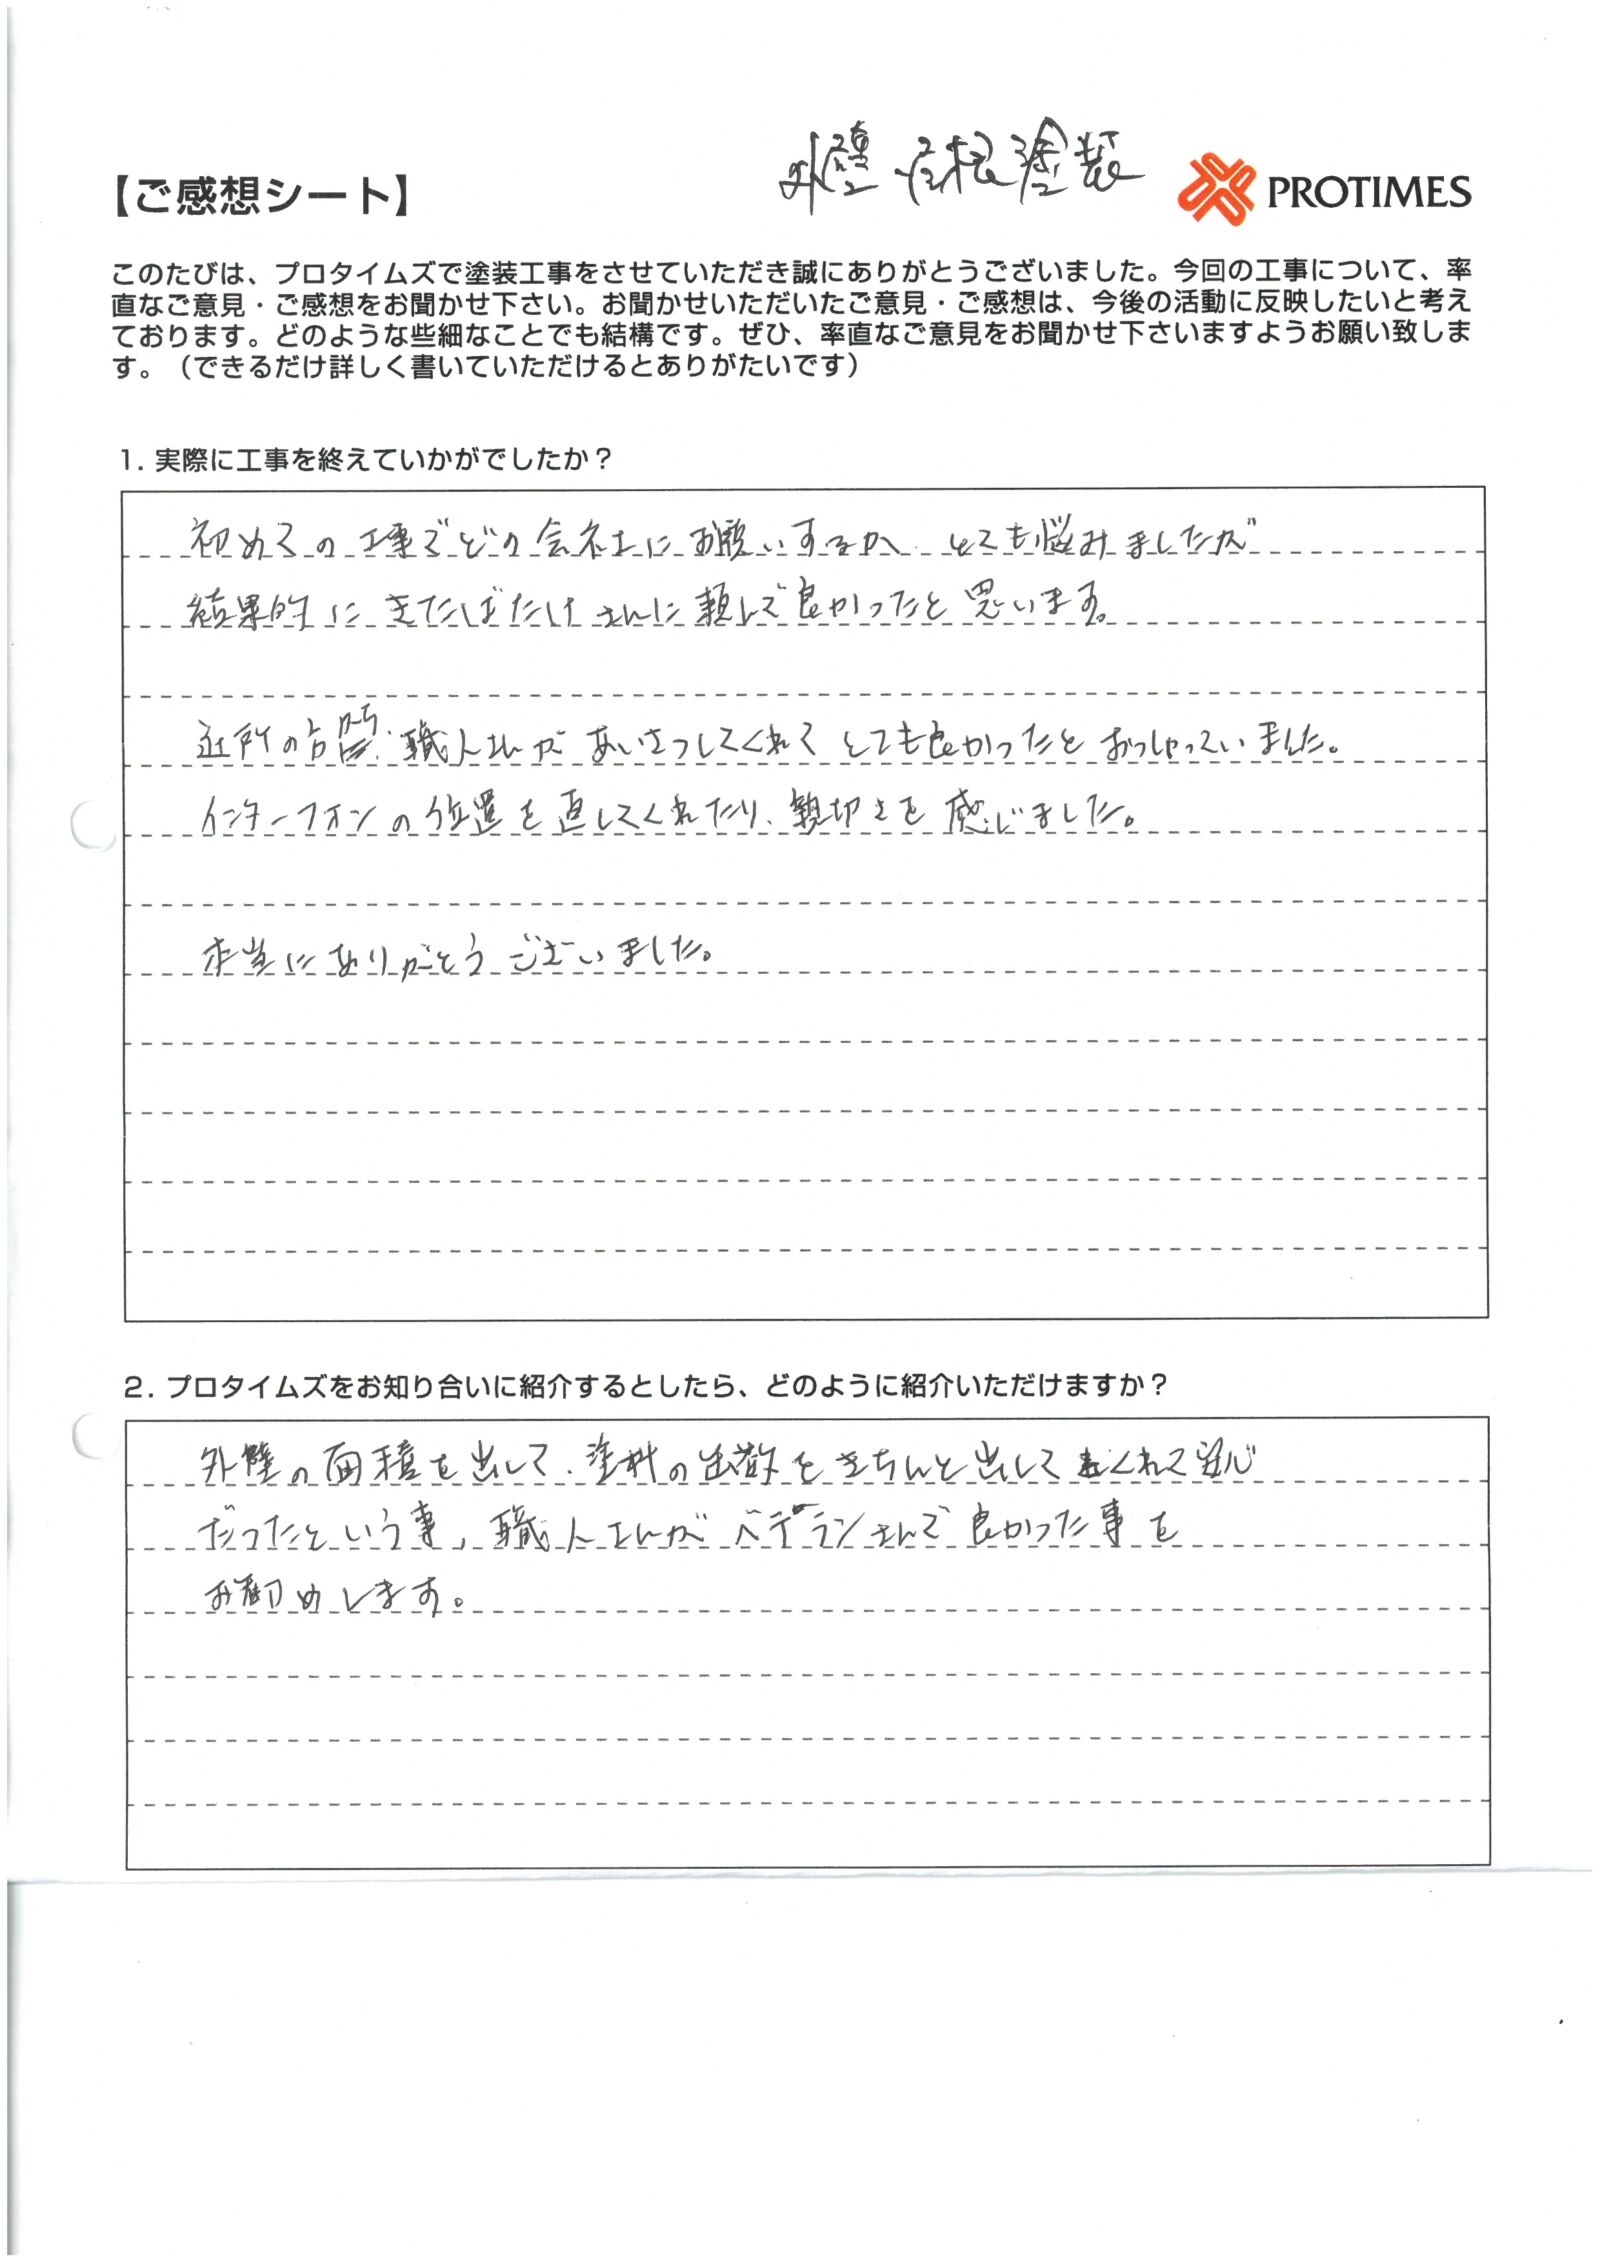 外壁 屋根塗装
【ご感想シート】
PROTIMES
このたびは、プロタイムズで塗装工事をさせていただき誠にありがとうございました。今回の工事について、率
直なご意見・ご感想をお聞かせ下さい。お聞かせいただいたご意見・ご感想は、今後の活動に反映したいと考え
ております。どのような些細なことでも結構です。ぜひ、率直なご意見をお聞かせ下さいますようお願い致しま
す。（できるだけ詳しく書いていただけるとありがたいです）
1. 実際に工事を終えていかがでしたか？
初めての工事でどの会社にお願いするか とても悩みましたが
結果的に きたばたけ さんに頼んで良かったと思います。
近所の方 職人さんが あいさつしてくれて とても良かったと おっしゃっていました。
インターフォンの位置を直してくれたり、親切さを感じました。
本当にありがとうございました。
2. プロタイムズをお知り合いに紹介するとしたら、どのように紹介いただけますか？
外壁の面積を出して、塗料の缶数をきちんと出して くれて安心
だったという事、職人さんがベテランさんで良かった事を
お勧めします。